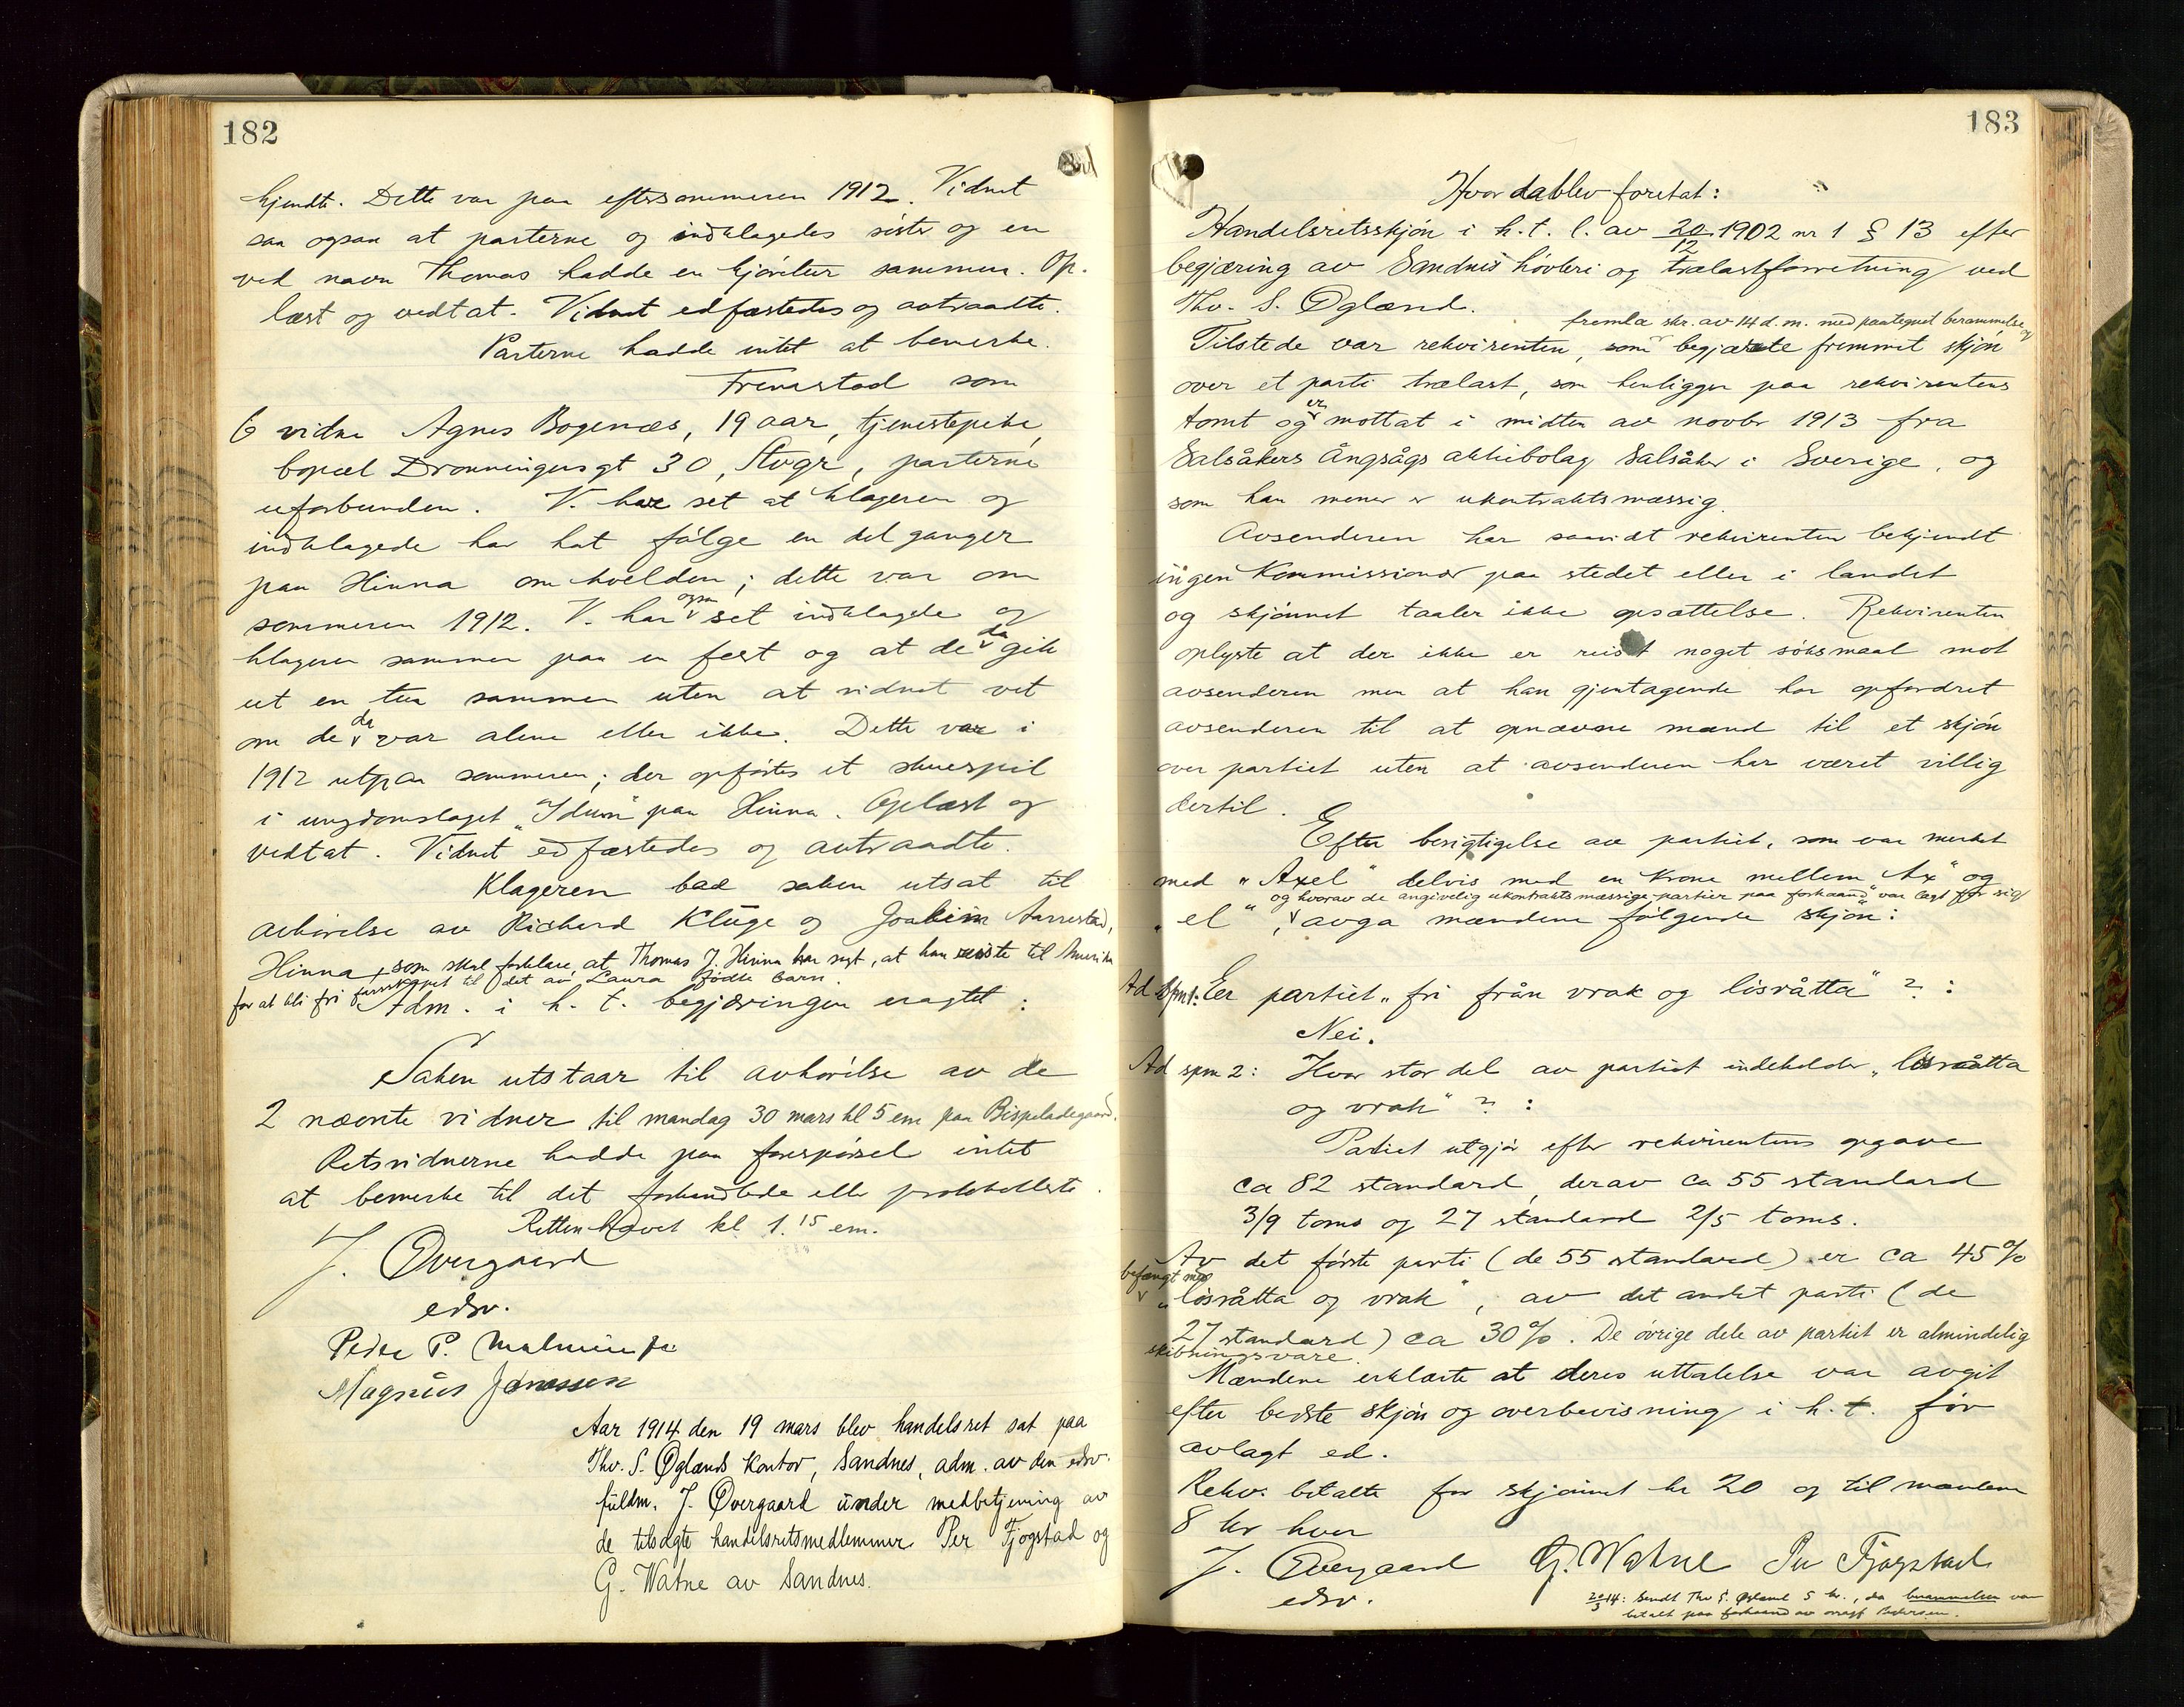 182
kjendte. Dette var paa eftersommeren 1912. Vidnet
saa ogsaa at parterne og indklagedes søster og en
ved navn Thomas hadde en kjøretur sammen. Op-
læst og vedtat. Vidnet edfæstedes og avtraadte.
Parterne hadde intet at bemerke.
Fremstod som
6 vidne Agnes Bogenæs, 19 aar, tjenestepike,
bopæl Dronningensgt 30, Stvgr, parterne
uforbunden. V. har set at klageren og
indklagede har hat følge en del ganger
paa Hinna om kvelden; dette var om
sommeren 1912. V. har ogsaa set indklagede og
klageren sammen paa en fest og at de da gik
ut en tur sammen uten at vidnet vet
om de da var alene eller ikke. Dette var i
1912 utpaa sommeren; der opførtes et skuespil
i ungdomslaget "Idun" paa Hinna. Oplæst og
vedtat. Vidnet edfæstedes og avtraadte.
Klageren bad saken utsat til
avhørelse av Richard Kluge og Joakim Aarrestad,
Hinna, som skal forklare, at Thomas J. Hinna har sagt, at han reiste til Amerika
for at bli fri farskapet til det av Laura fødte barn.
Adm. i h. t. begjæringen eragtet:
Saken utstaar til avhørelse av de
2 nævnte vidner til mandag 30 mars kl 5 em paa Bispeladegaard.
Retsvidnerne hadde paa forespørsel intet
at bemerke til det forhandlede eller protokollerte.
Retten hævet kl. 1.15 em.
J. Øvergaard
edsv.
Peder P. Malmin
Magnus Jonassen
Aar 1914 den 19 mars blev handelsret sat paa
Thv. S. Øglænds kontor, Sandnes, adm. av den edsv.
fuldm. J. Øvergaard under medbetjening av
de tilsagte handelsretsmedlemmer Per Fjogstad og
G. Watne av Sandnes.
183
Hvor da blev foretat:
Handelsretsskjøn i h. t. l. av 20/12 1902 nr 1 § 13 efter
begjæring av Sandnes høvleri og trælastforretning ved
Thv. S. Øglænd.
fremla skr. av 14 d. m. med paategnet berammelse og
Tilstede var rekvirenten, som begjærte fremmet skjøn
over et parti trælast, som henligger paa rekvirentens
tomt og er mottat i midten av novbr 1913 fra
Salsåkers Ångsågs aktiebolag Salsåker i Sverige, og
som han mener er ukontraktsmæssig.
Avsenderen har saavidt rekvirenten bekjendt
ingen kommissionær paa stedet eller i landet
og skjønnet taaler ikke opsættelse. Rekvirenten
oplyste at der ikke er reist noget søksmaal mot
avsenderen men at han gjentagende har opfordret
avsenderen til at opnævne mænd til et skjøn
over partiet uten at avsenderen har været villig
dertil.
Efter besigtigelse av partiet, som var merket
med "Axel" delvis med en krone mellem "Ax" og
og hvorav de angivelig ukontraktsmæssige partier paa forhaand var lagt for sig,
"el", avga mændene følgende skjøn:
Ad spm 1: Er partiet "fri från vrak og lösråtta"?:
Nei.
Ad spm 2: Hvor stor del av partiet indeholder "lösråtta
og vrak"?:
Partiet utgjør efter rekvirentens opgave
ca 82 standard, derav ca 55 standard
3/9 toms og 27 standard 2/5 toms.
Av det første parti (de 55 standard) er ca 45%
befængt med
"lösråtta og vrak", av det andet parti (de
27 standard) ca 30%. De øvrige dele av partiet er almindelig
skibningsvare.
Mændene erklærte at deres uttalelse var avgit
efter bedste skjøn og overbevisning i h. t. før
avlagt ed.
Rekv. betalte for skjønnet kr 20 og til mændene
8 kr hver
J. Øvergaard G. Watne Per Fjogstad
edsv.
20/3 14: Sendt Thv S. Øglænd 5 kr., da berammelsen var
betalt paa forhaand av Pedersen.